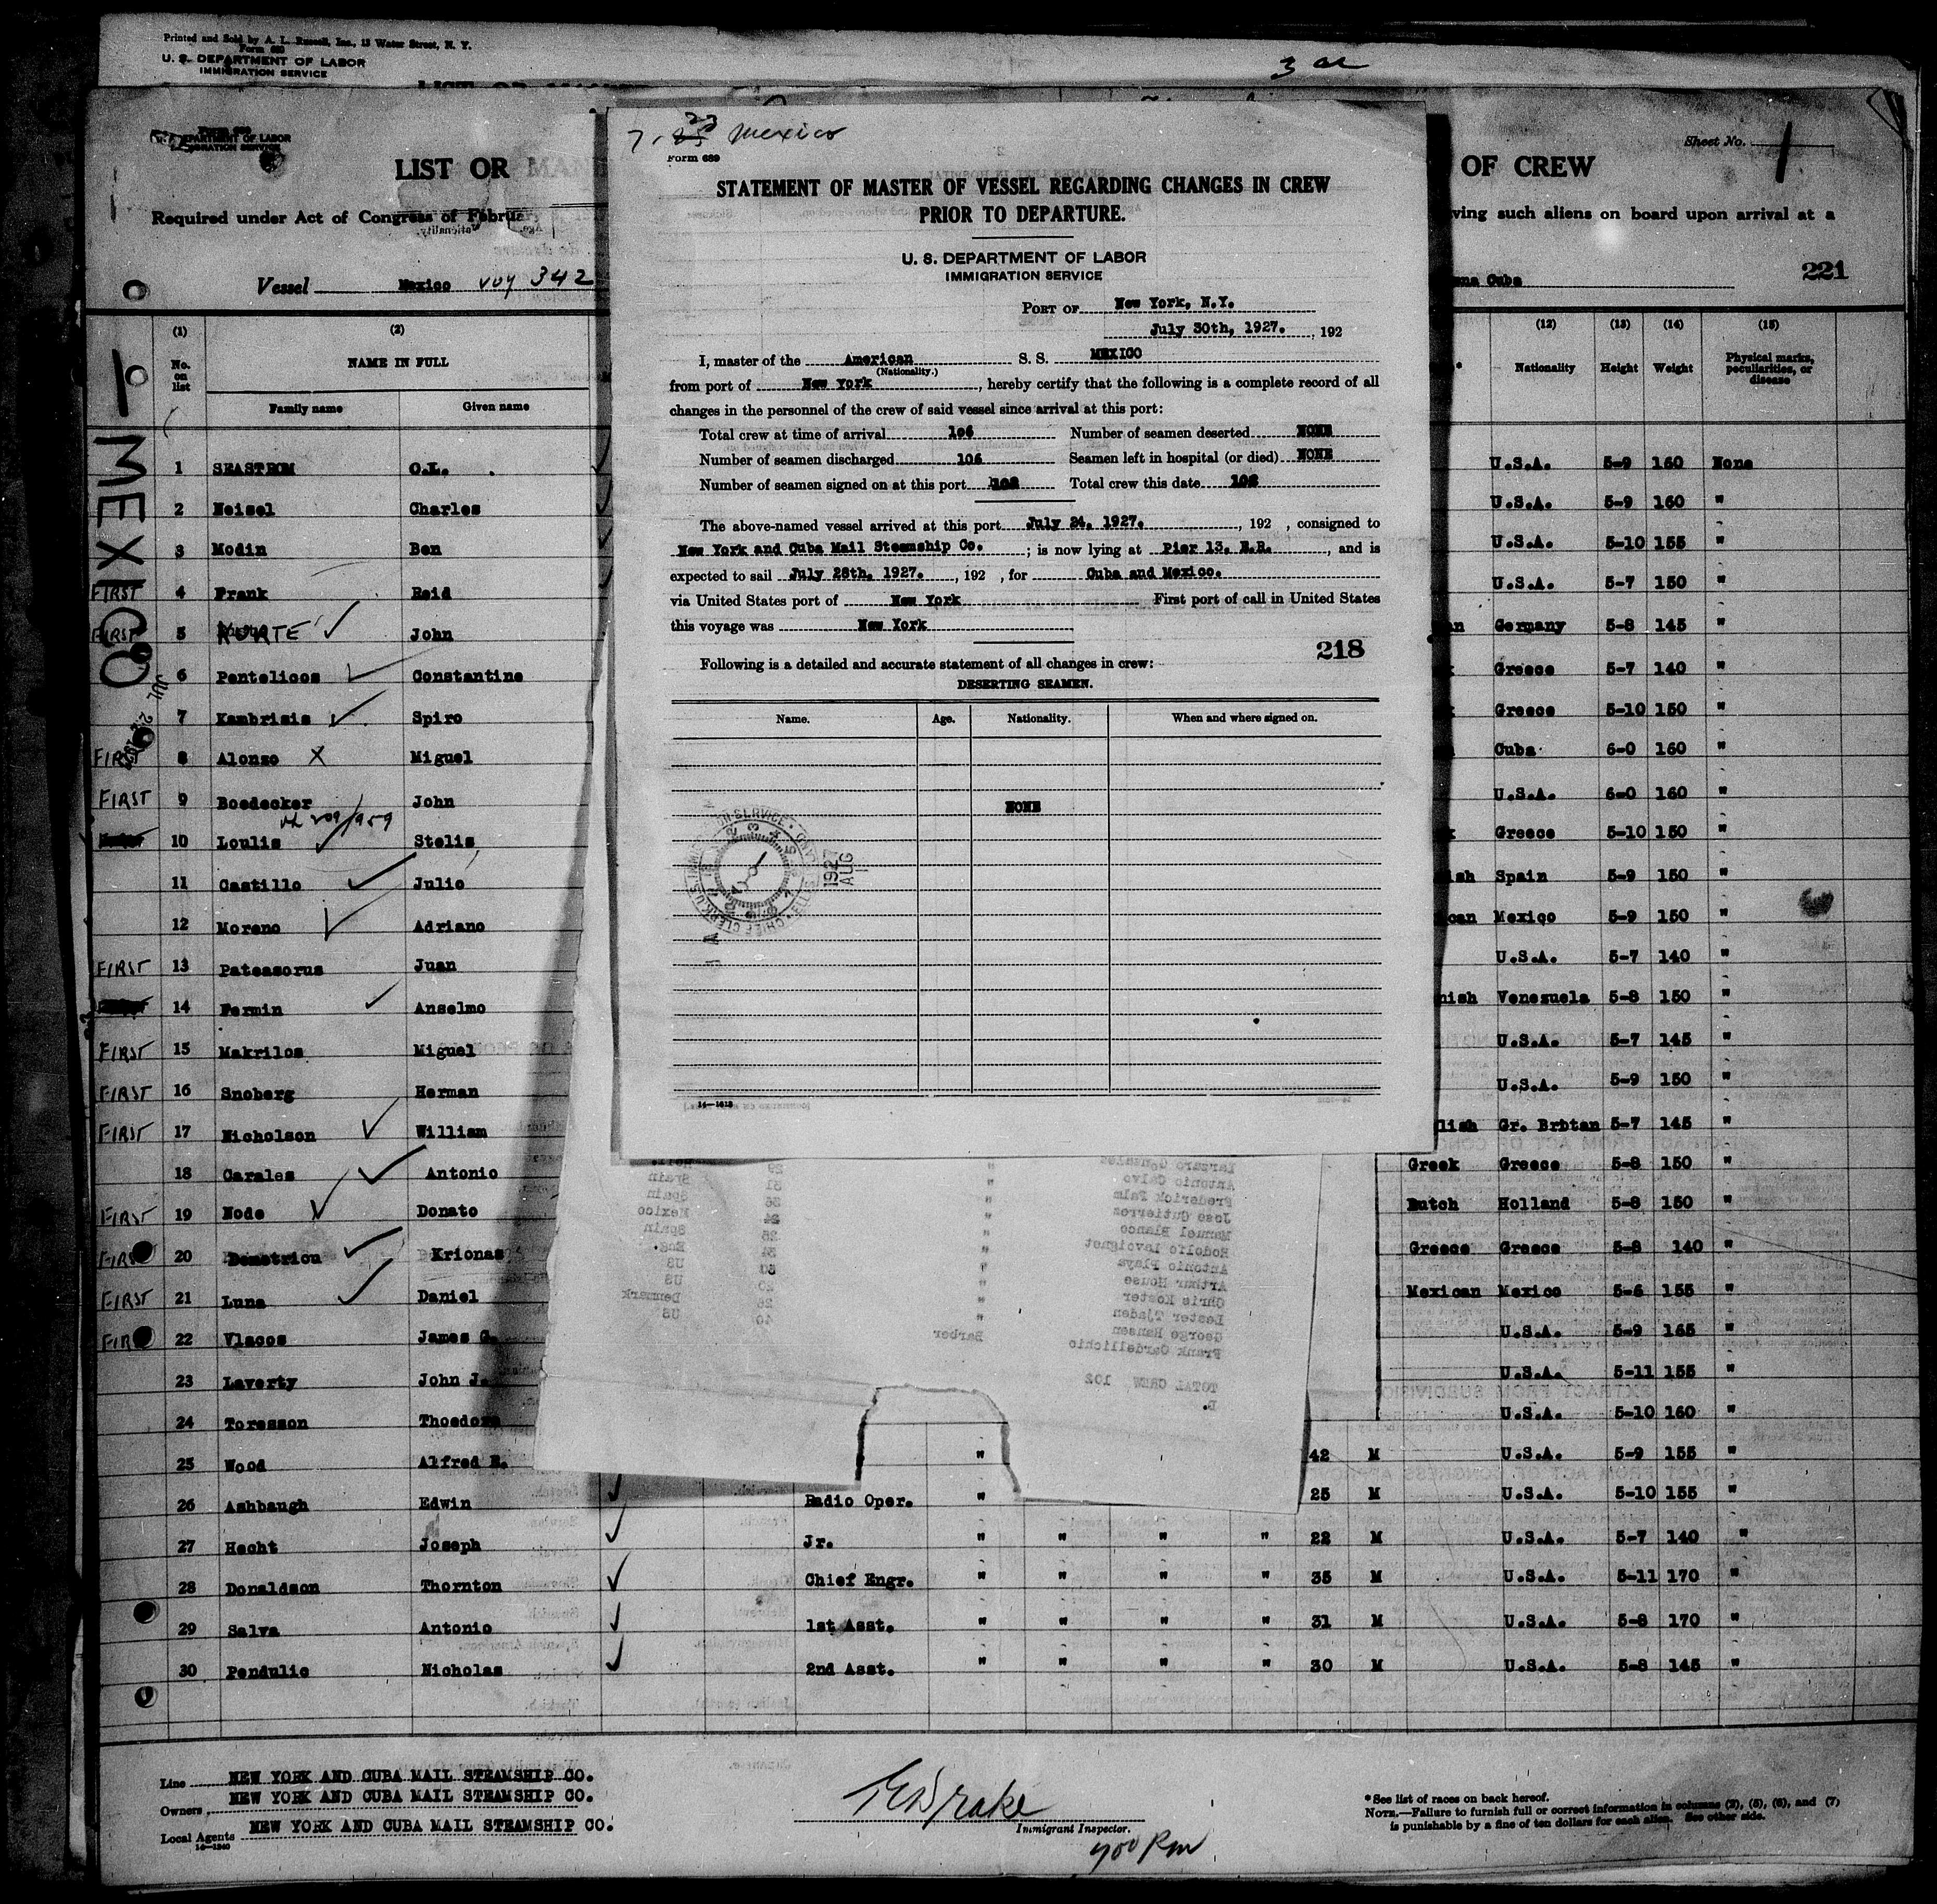 Printed and Sold by A. L. Russell, Inc., 13 Water Street, N. Y.
Form 680
U. S. DEPARTMENT OF LABOR
IMMIGRATION SERVICE
LIST OR
OF CREW
Sheet No. 1
Required under Act of Congress of Februa
ving such aliens on board upon arrival at a
Vessel Mexico voy 342
ana Cuba
221
MEXICO
7. 23 Mexico
Form 689
STATEMENT OF MASTER OF VESSEL REGARDING CHANGES IN CREW
PRIOR TO DEPARTURE.
U. S. DEPARTMENT OF LABOR
IMMIGRATION SERVICE
PORT OF New York, N.Y.
July 30th, 1927. , 192
I, master of the American S. S. MEXICO
(Nationality.)
from port of New York , hereby certify that the following is a complete record of all
changes in the personnel of the crew of said vessel since arrival at this port:
Total crew at time of arrival 106 Number of seamen deserted NONE
Number of seamen discharged 106 Seamen left in hospital (or died) NONE
Number of seamen signed on at this port 102 Total crew this date 102
The above-named vessel arrived at this port July 24, 1927. , 192 , consigned to
New York and Cuba Mail Steamship Co. ; is now lying at Pier 13, E.R. , and is
expected to sail July 28th, 1927. , 192 , for Cuba and Mexico.
via United States port of New York First port of call in United States
this voyage was New York
218
Following is a detailed and accurate statement of all changes in crew:
DESERTING SEAMEN.
Name. Age. Nationality. When and where signed on.
NONE
1927
AUG
14—1613
(1) (2) (12) (13) (14) (15)
No. on list NAME IN FULL Nationality Height Weight Physical marks, peculiarities, or disease
Family name Given name
1 SEASTROM O.L. U.S.A. 5-9 160 None
2 Neisel Charles U.S.A. 5-9 160 "
3 Modin Ben U.S.A. 5-10 155 "
FIRST 4 Frank Reid U.S.A. 5-7 150 "
FIRST 5 KURTE John Germany 5-8 145 "
6 Pentelicos Constantine Greece 5-7 140 "
7 Kambrisis Spiro Greece 5-10 150 "
FIRST 8 Alonzo X Miguel Cuba 6-0 160 "
FIRST 9 Boedecker John U.S.A. 6-0 160 "
10 Loulis Stelis Greece 5-10 150 "
11 Castillo Julio ish Spain 5-9 150 "
12 Moreno Adriano can Mexico 5-9 150 "
FIRST 13 Pateasorus Juan U.S.A. 5-7 140 "
14 Fermin Anselmo nish Venezuela 5-8 150 "
FIRST 15 Makrilos Miguel U.S.A. 5-7 145 "
FIRST 16 Snoberg Herman U.S.A. 5-9 150 "
FIRST 17 Nicholson William lish Gr. Brbtan 5-7 145 "
18 Carales Antonio Greek Greece 5-8 150 "
FIRST 19 Node Donato Dutch Holland 5-8 150 "
FIRST 20 Demetriou Krionas Greece Greece 5-8 140 "
FIRST 21 Luna Daniel Mexican Mexico 5-6 155 "
FIRST 22 Vlacos James G. U.S.A. 5-9 165 "
23 Laverty John J. U.S.A. 5-11 155 "
24 Toresson Thoedore U.S.A. 5-10 160 "
25 Wood Alfred E. " 42 M U.S.A. 5-9 155 "
26 Ashbaugh Edwin Radio Oper. " 25 M U.S.A. 5-10 155 "
27 Hecht Joseph Jr. " " " " 22 M U.S.A. 5-7 140 "
28 Donaldson Thornton Chief Engr. " " " " 35 M U.S.A. 5-11 170 "
29 Salva Antonio 1st Asst. " " " " 31 M U.S.A. 5-8 170 "
30 Pendulic Nicholas 2nd Asst. " " " " 30 M U.S.A. 5-8 145 "
Larzaro Gonzales " 29
Antonio Calvo " 31 Spain
Frederick Palm " 36 Spain
Jose Gutierres " 24 Mexico
Manuel Blanco " 25 Spain
Rodolfo Lavoignet " 34 Eng.
Antonio Playa US
Arthur House " US
Chris Koster " Denmark
Lester Tjaden " US
George Hansen
Frank Cardellichio Barber
TOTAL CREW 102
Line NEW YORK AND CUBA MAIL STEAMSHIP CO.
Owners NEW YORK AND CUBA MAIL STEAMSHIP CO.
Local Agents NEW YORK AND CUBA MAIL STEAMSHIP CO.
14—1240
Drake
Immigrant Inspector.
700 Pm
* See list of races on back hereof.
NOTE.—Failure to furnish full or correct information in columns (2), (5), (6), and (7)
is punishable by a fine of ten dollars for each alien. See other side.